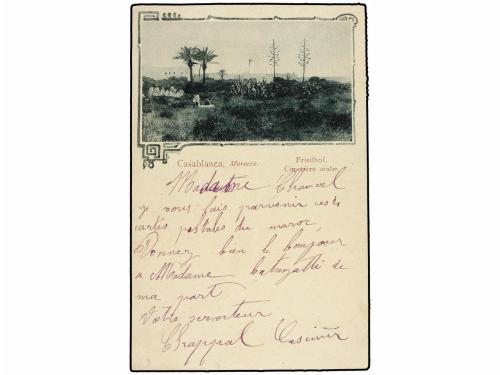 Casablanca, Marocco.
Friedhof.
Cimetière arabe.
Madame Chancel
je vous fais parvenir ces
cartes postales du maroc
Donnez bien le bonjour
a Madame de
ma part
Votre serviteur
Chappal Casimir